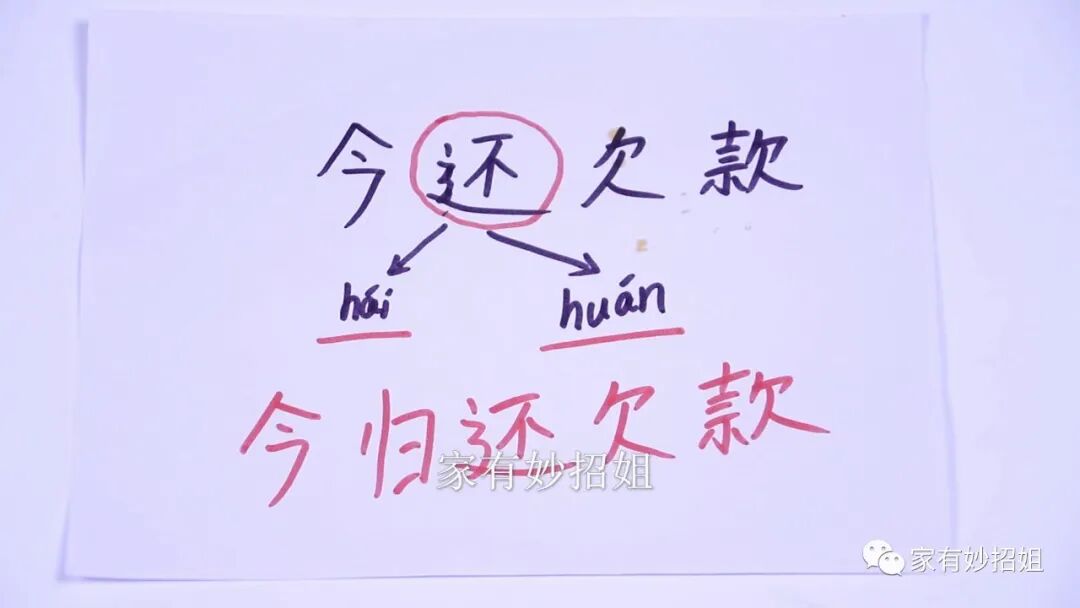 今还欠款
hái huán
今归还欠款
家有妙招姐
家有妙招姐